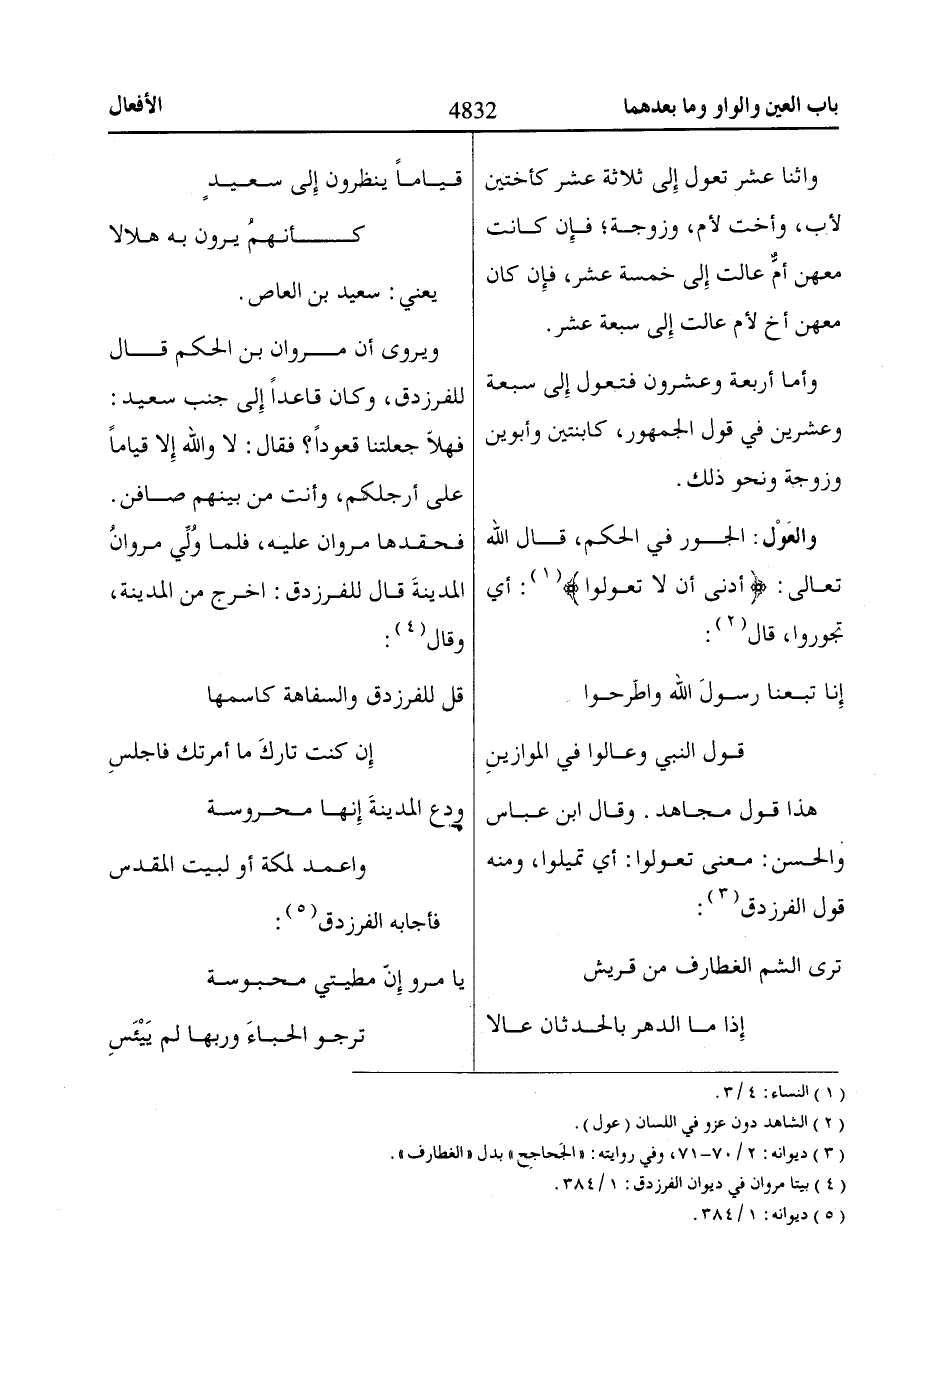 باب العين والواو وما بعدهما
4832
الأفعال
واثنا عشر تعول إلى ثلاثة عشر كأختين
لأب، وأخت لأم، وزوجة؛ فإن كانت
معهن أمٌّ عالت إلى خمسة عشر، فإن كان
معهن أخ لأم عالت إلى سبعة عشر.
وأما أربعة وعشرون فتعول إلى سبعة
وعشرين في قول الجمهور، كابنتين وأبوين
وزوجة ونحو ذلك.
والعَوْل: الجور في الحكم، قال الله
تعالى: ﴿أدنى أن لا تعولوا﴾(١): أي
تجوروا، قال(٢):
إنا تبعنا رسولَ الله واطَرحوا
قول النبي وعالوا في الموازينِ
هذا قول مجاهد. وقال ابن عباس
والحسن: معنى تعولوا: أي تميلوا، ومنه
قول الفرزدق(٣):
ترى الشم الغطارف من قريش
إذا ما الدهر بالحدثان عالا
قياماً ينظرون إلى سعيدٍ
كأنهمُ يرون به هلالا
يعني: سعيد بن العاص.
ويروى أن مروان بن الحكم قال
للفرزدق، وكان قاعداً إلى جنب سعيد:
فهلاّ جعلتنا قعوداً؟ فقال: لا والله إلا قياماً
على أرجلكم، وأنت من بينهم صافن.
فحقدها مروان عليه، فلما وُلِّي مروانُ
المدينةَ قال للفرزدق: اخرج من المدينة،
وقال(٤):
قل للفرزدق والسفاهة كاسمها
إن كنت تاركَ ما أمرتك فاجلسِ
ودع المدينةَ إنها محروسة
واعمد لمكة أو لبيت المقدس
فأجابه الفرزدق(٥):
يا مرو إنّ مطيتي محبوسة
ترجو الحباءَ وربها لم يَيْئَسِ
(١) النساء: ٤/٣.
(٢) الشاهد دون عزو في اللسان (عول).
(٣) ديوانه: ٢/٧٠-٧١، وفي روايته: «الجَحاجح» بدل «الغطارف».
(٤) بيتا مروان في ديوان الفرزدق: ١/٣٨٤.
(٥) ديوانه: ١/٣٨٤.